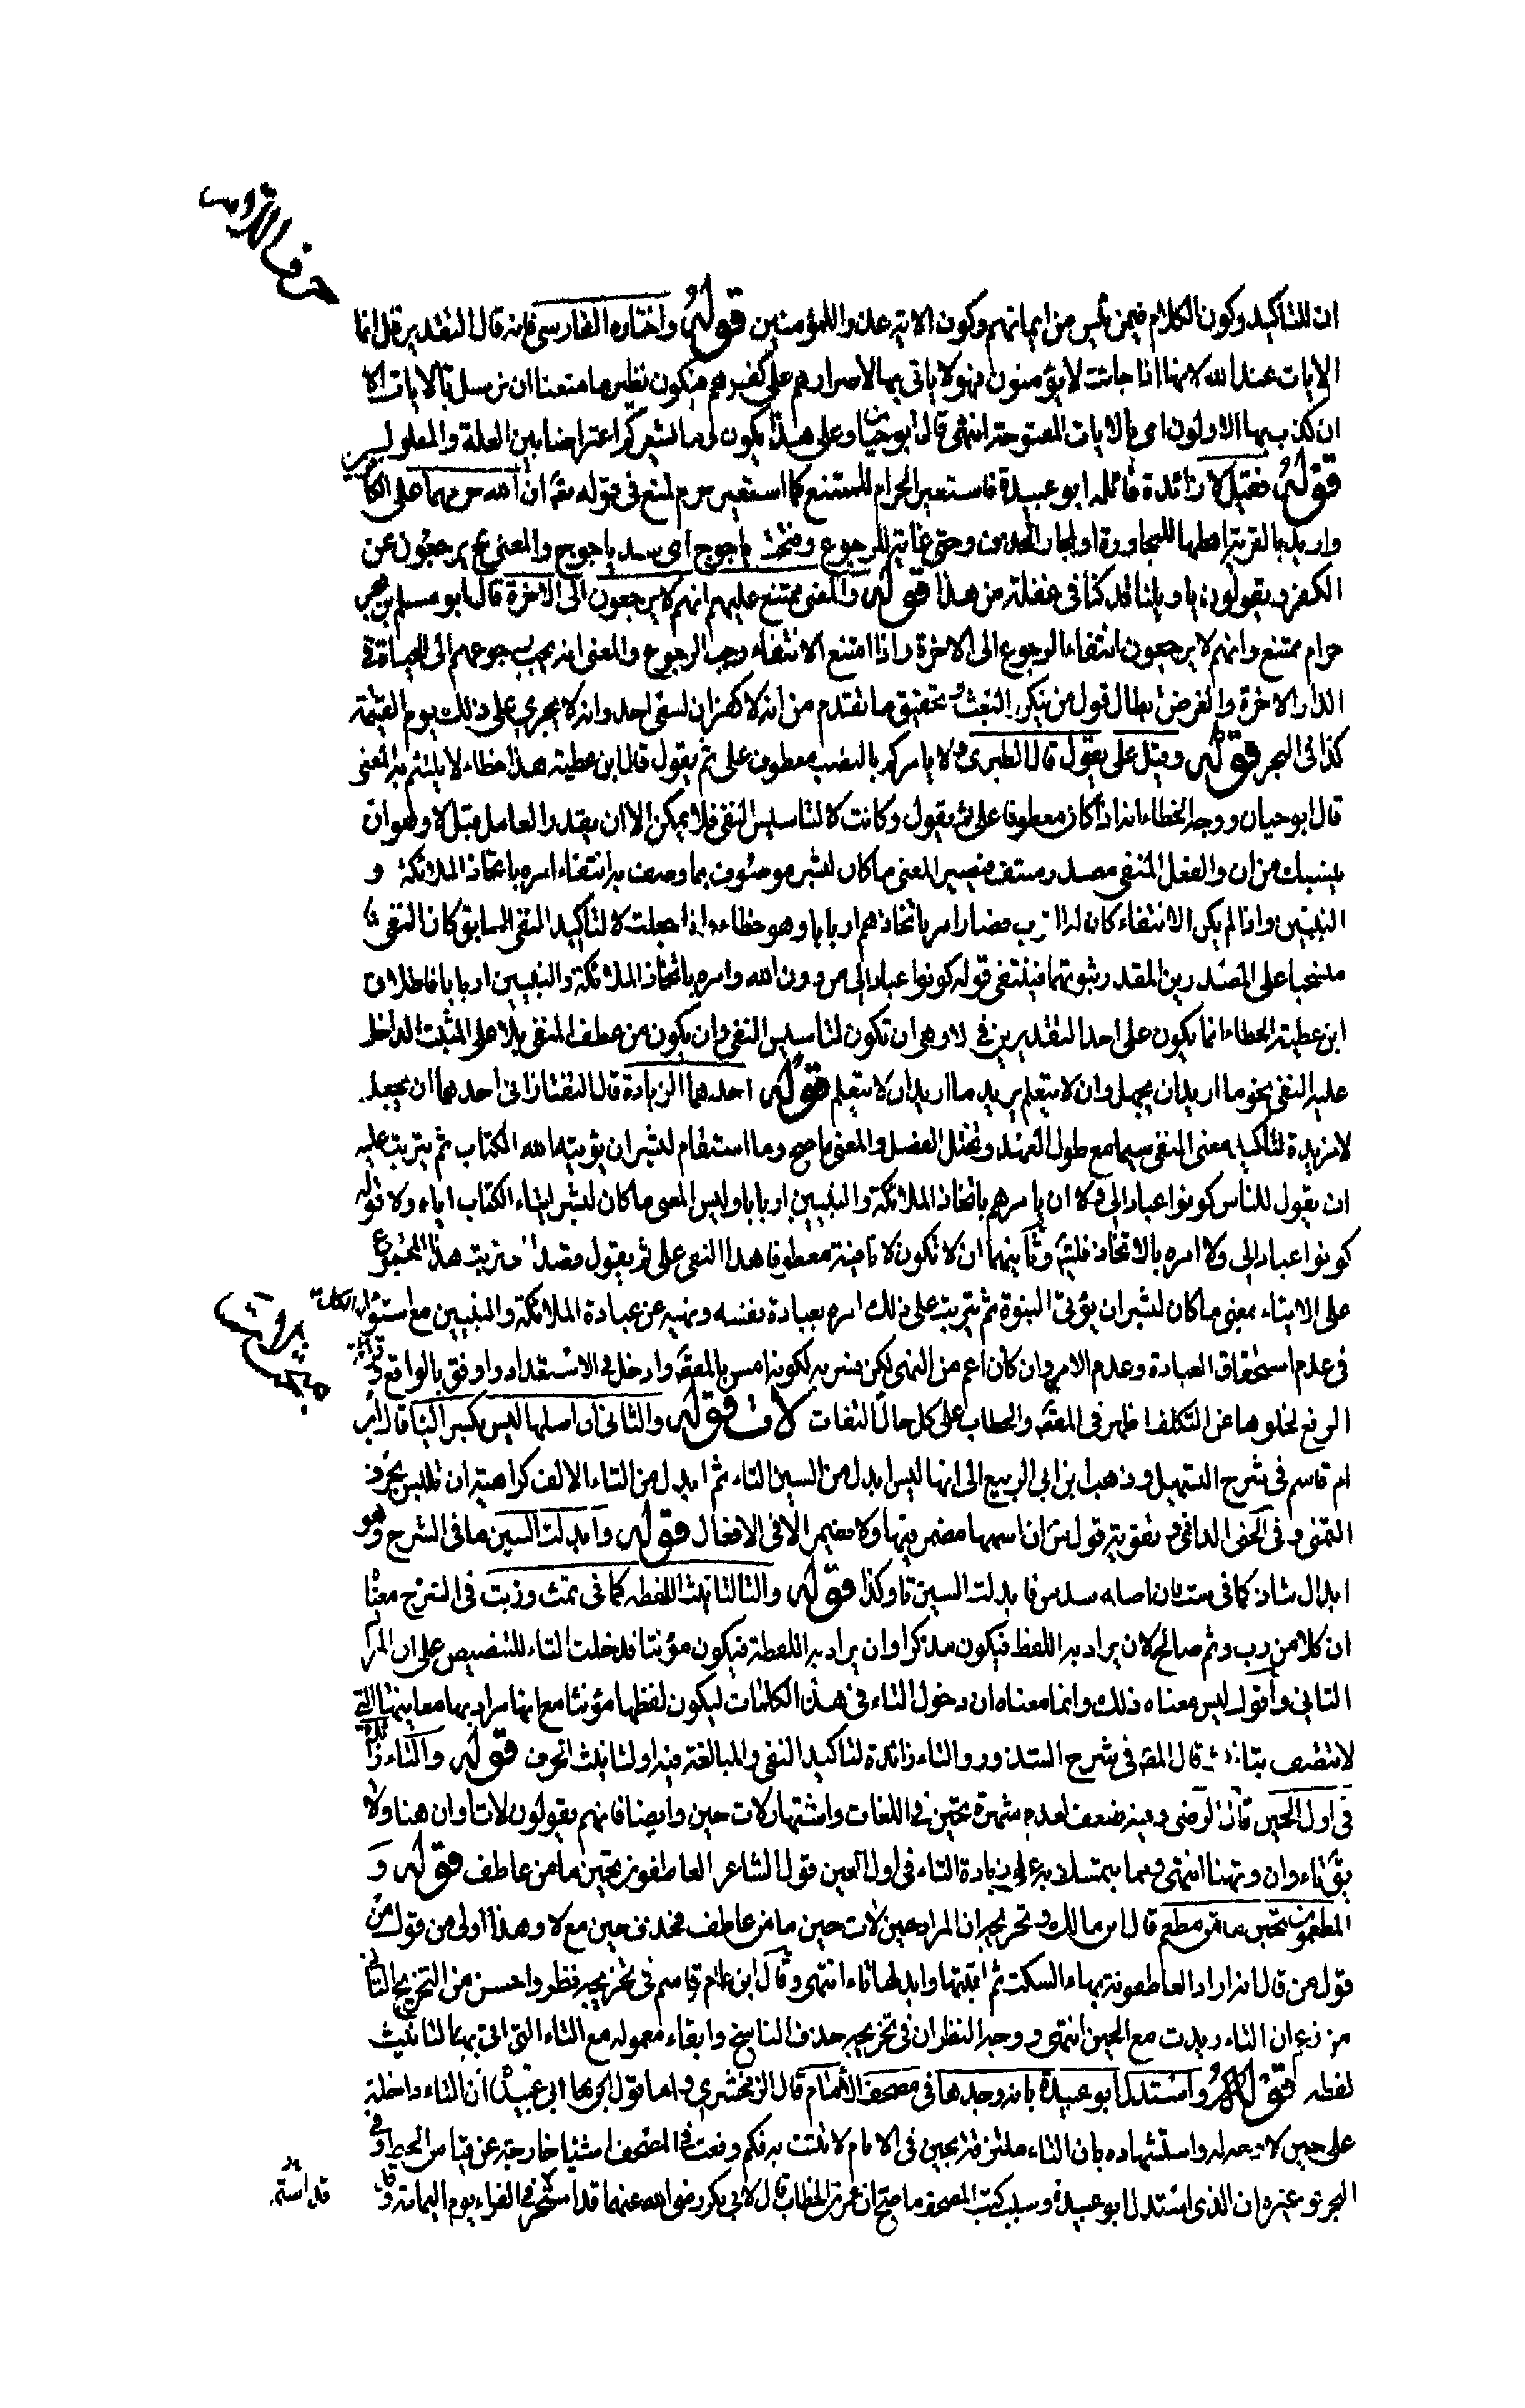 ان للتاكيد وكون الكلام فيمن يئس من ايمانهم وكون الاية عذرا للمؤمنين قوله واختاره الفارسى فانه قال التقدير قل انما
الايات عند الله لانها اذا جاءت لا يؤمنون فهو لا ياتى بها لاصرارهم على كفرهم فيكون نظير وما منعنا ان نرسل بالايات الا
ان كذب بها الاولون اى بالايات المقترحة انتهى قال ابو حيان وعلى هذا يكون وما يشعركم اعتراضا بين العلة والمعلول
قوله فقيل لا زائدة قائله ابو عبيدة فاستعير الحرام للممتنع كما استعير حرم لمنع فى قوله تعالى ان الله حرمهما على الكافرين
واريد بالقرية اهلها للمجاورة او لمجاز الحذف وحتى غاية للرجوع وفتحت ياجوج اى سد ياجوج والمعنى يرجعون عن
الكفر ويقولون يا ويلنا قد كنا فى غفلة من هذا قوله والمعنى ممتنع عليهم انهم لا يرجعون الى الاخرة قال ابو مسلم بن بحر
حرام ممتنع وانهم لا يرجعون انتفاء الرجوع الى الاخرة واذا امتنع الانتفاء وجب الرجوع والمعنى انه يجب رجوعهم الى الحياة فى
الدار الاخرة والغرض ابطال قول من ينكر البعث وتحقيق ما تقدم من انه لا كفران لسعى احد وانه لا يجزى على ذلك يوم القيمة
كذا فى البحر قوله وقيل على يقول قال الطبرى ولا يامركم بالنصب معطوف على ثم يقول قال ابن عطية هذا خطاء لا يلتئم به المعنى
قال ابو حيان ووجه الخطاء انه اذا كان معطوفا على ثم يقول وكانت لا لتاسيس النفى فلا يمكن الا ان يقدر العامل قبل لا وهو ان
ينسبك من ان والفعل المنفى مصدر منتف فيصير المعنى ما كان لبشر موصوف بما وصف به انتفاء امره باتخاذ الملائكة و
النبيين واذا لم يكن الانتفاء كان له الثبوت فصار امرا باتخاذهم اربابا وهو خطاء واذا جعلت لا لتاكيد النفى السابق كان النفى
منسحبا على المصدرين المقدر ثبوتهما فينتفى قوله كونوا عبادا لى من دون الله وامره باتخاذ الملائكة والنبيين اربابا فاطلاق
ابن عطية الخطاء انما يكون على احد التقديرين فى لا وهى ان تكون لتاسيس النفى وان يكون من عطف المنفى بلا على المثبت الداخل
عليه النفى نحو ما اريد ان يجهل وان لا يتعلم يريد ما اريد ان لا يتعلم قوله احدهما الزيادة قال التفتازانى احدهما ان يجعل
لا مزيدة لتاكيد معنى النفى سيما مع طول العهد وتخلل الفصل والمعنى ما صح وما استقام لبشر ان يؤتيه الله الكتاب ثم يترتب عليه
ان يقول للناس كونوا عبادا لى ولا ان يامرهم باتخاذ الملائكة والنبيين اربابا وليس المعنى ما كان لبشر ايتاء الكتاب اياه ولا قوله
كونوا عبادا لى ولا امره بالاتخاذ وثانيهما ان لا تكون لا نافية معطوفا هذا النفى على ثم يقول قصدا ترتيب هذا المجموع
على الايتاء بمعنى ما كان لبشر ان يؤتى النبوة ثم يترتب على ذلك امره بعبادة نفسه ونهيه عن عبادة الملائكة والنبيين مع استواء الكل
فى عدم استحقاق العبادة وعدم الامر وان كان اعم من النهى لكن لكونه امس بالمقصود وادخل فى الاستبعاد واوفق بالواقع وقراءة
الرفع لخلوها عن التكلف اظهر فى المقصود والخطاب على كل حال التفات لات قوله والثانى ان اصلها ليس بكسر الياء قال ابن
ام قاسم فى شرح التسهيل وذهب ابن ابى الربيع الى انها ليس ابدل من السين التاء ثم ابدل من التاء الالف كراهية ان تلتبس بحرف
التمنى وفى الجنى الدانى ويقويه قول س ان اسمها مضمر فيها ولا يضمر الا فى الافعال قوله وابدلت السين ما فى الشرح وهو
ابدال شاذ كما فى ست فان اصله سدس فابدلت السين تا وكذا قوله والتا لتانيث اللفظه كما فى ثمت وربت فى الشرح معنا
ان كلا من رب وثم صالح لان يراد به اللفظ فيكون مذكرا وان يراد به اللفظة فيكون مؤنثا فدخلت التاء للتنصيص على ان المراد
الثانى واقول ليس معناه ذلك وانما معناه ان دخول التاء فى هذه الكلمات ليكون لفظها مؤنثا مع انها مراد بها معانيها التى
لا تتصف بتانيث قال المص فى شرح الشذور والتاء زائدة لتاكيد النفى والمبالغة فيه او لتانيث الحرف قوله والتاء زائدة
فى اول الحين قال الرضى وفيه ضعف لعدم شهرة تحين فى اللغات واشتهار لات حين وايضا فانهم يقولون لات اوان هنا ولا
يقال تاوان وتهنا انتهى ومما يتمسك به على زيادة التاء فى اول الحين قول الشاعر العاطفون تحين ما من عاطف قوله و
المطعمون تحين ما من مطعم قال ابن مالك وتخريجه ان المراد حين لات حين ما من عاطف فحذف حين مع لا وهذا اولى من قول من
قول من قال انه اراد العاطفونه بهاء السكت ثم اثبتها وابدلها تاء انتهى وقال ابن ام قاسم فى تخريجه نظر واحسن من التخريج الثانى
من زعم ان التاء زيدت مع الحين انتهى ووجه النظر ان فى تخريجه حذف الناسخ وابقاء معموله مع التاء التى اتى بها لتانيث
لفظه قوله واستدل ابو عبيدة بانه وجدها فى مصحف الامام قال الزمخشرى واما قول ابى عبيد ان التاء داخلة
على حين لا وجه له واستشهاده بان التاء ملتزقة بحين فى الامام لا تثبت به فكم وقعت فى المصحف اشياء خارجة عن قياس الخط وفى
البحر وغيره ان الذى استدل ابو عبيدة وسبب كتب المصحف ما صح ان عمر بن الخطاب قال لابى بكر رضى الله عنهما قد استحر فى القراء يوم اليمامة
قد استحر